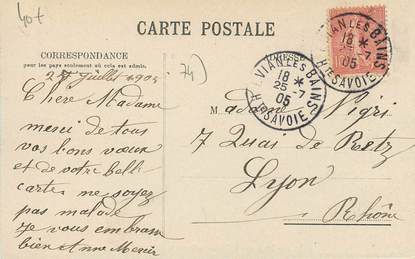 40+
CARTE POSTALE
CORRESPONDANCE
pour les pays seulement où cela est admis.
74)
EVIAN LES BAINS
18 *
25 - 7
05
HTE SAVOIE
EVIAN LES BAINS
18 *
25 - 7
05
HTE SAVOIE
ADRESSE
25 juillet 1905
Chère Madame
merci de tous
vos bons vœux
et de votre belle
carte ne soyez
pas malade
Je vous embrasse
bien Anne Mercier
M adame Nigri
7 Quai de Retz
Lyon
Rhône